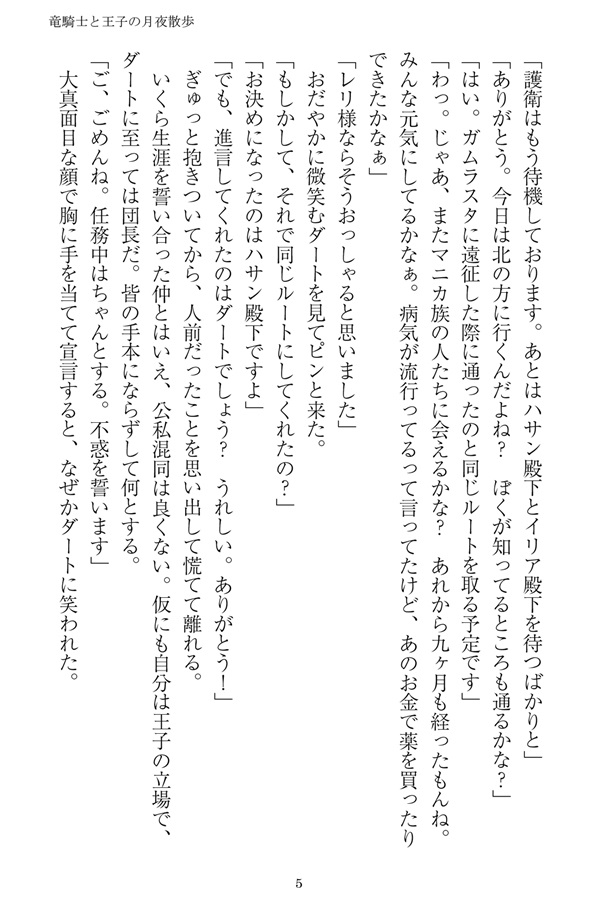 竜騎士と王子の月夜散歩
「護衛はもう待機しております。あとはハサン殿下とイリア殿下を待つばかりと」
「ありがとう。今日は北の方に行くんだよね？　ぼくが知ってるところも通るかな？」
「はい。ガムラスタに遠征した際に通ったのと同じルートを取る予定です」
「わっ。じゃあ、またマニカ族の人たちに会えるかな？　あれから九ヶ月も経ったもんね。
みんな元気にしてるかなぁ。病気が流行ってるって言ってたけど、あのお金で薬を買ったり
できたかなぁ」
「レリ様ならそうおっしゃると思いました」
おだやかに微笑むダートを見てピンと来た。
「もしかして、それで同じルートにしてくれたの？」
「お決めになったのはハサン殿下ですよ」
「でも、進言してくれたのはダートでしょう？　うれしい。ありがとう！」
ぎゅっと抱きついてから、人前だったことを思い出して慌てて離れる。
いくら生涯を誓い合った仲とはいえ、公私混同は良くない。仮にも自分は王子の立場で、
ダートに至っては団長だ。皆の手本にならずして何とする。
「ご、ごめんね。任務中はちゃんとする。不惑を誓います」
大真面目な顔で胸に手を当てて宣言すると、なぜかダートに笑われた。
5